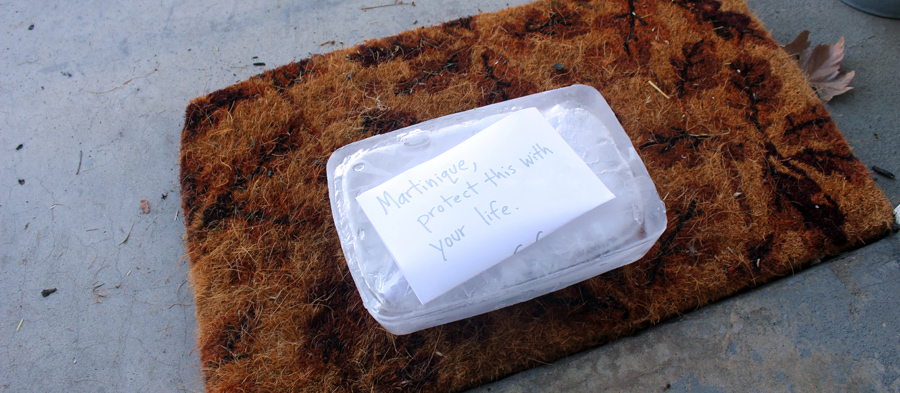 Martinique,
protect this with
your life.